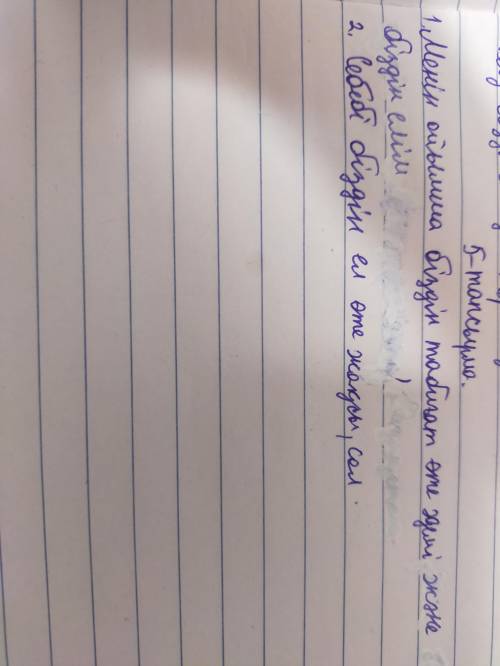 5-тапсырма.
1. Менің ойымша біздін табиғат өте әдемі және
біздін елім
2. Себебі біздін ел өте жақсы, сол